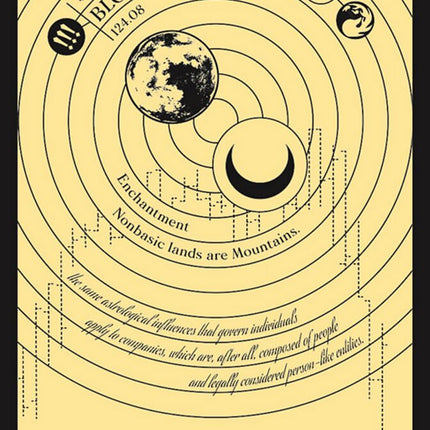 BLO
124.08
Enchantment
Nonbasic lands are Mountains.
the same astrological influences that govern individuals
apply to companies, which are, after all, composed of people
and legally considered person-like entities.